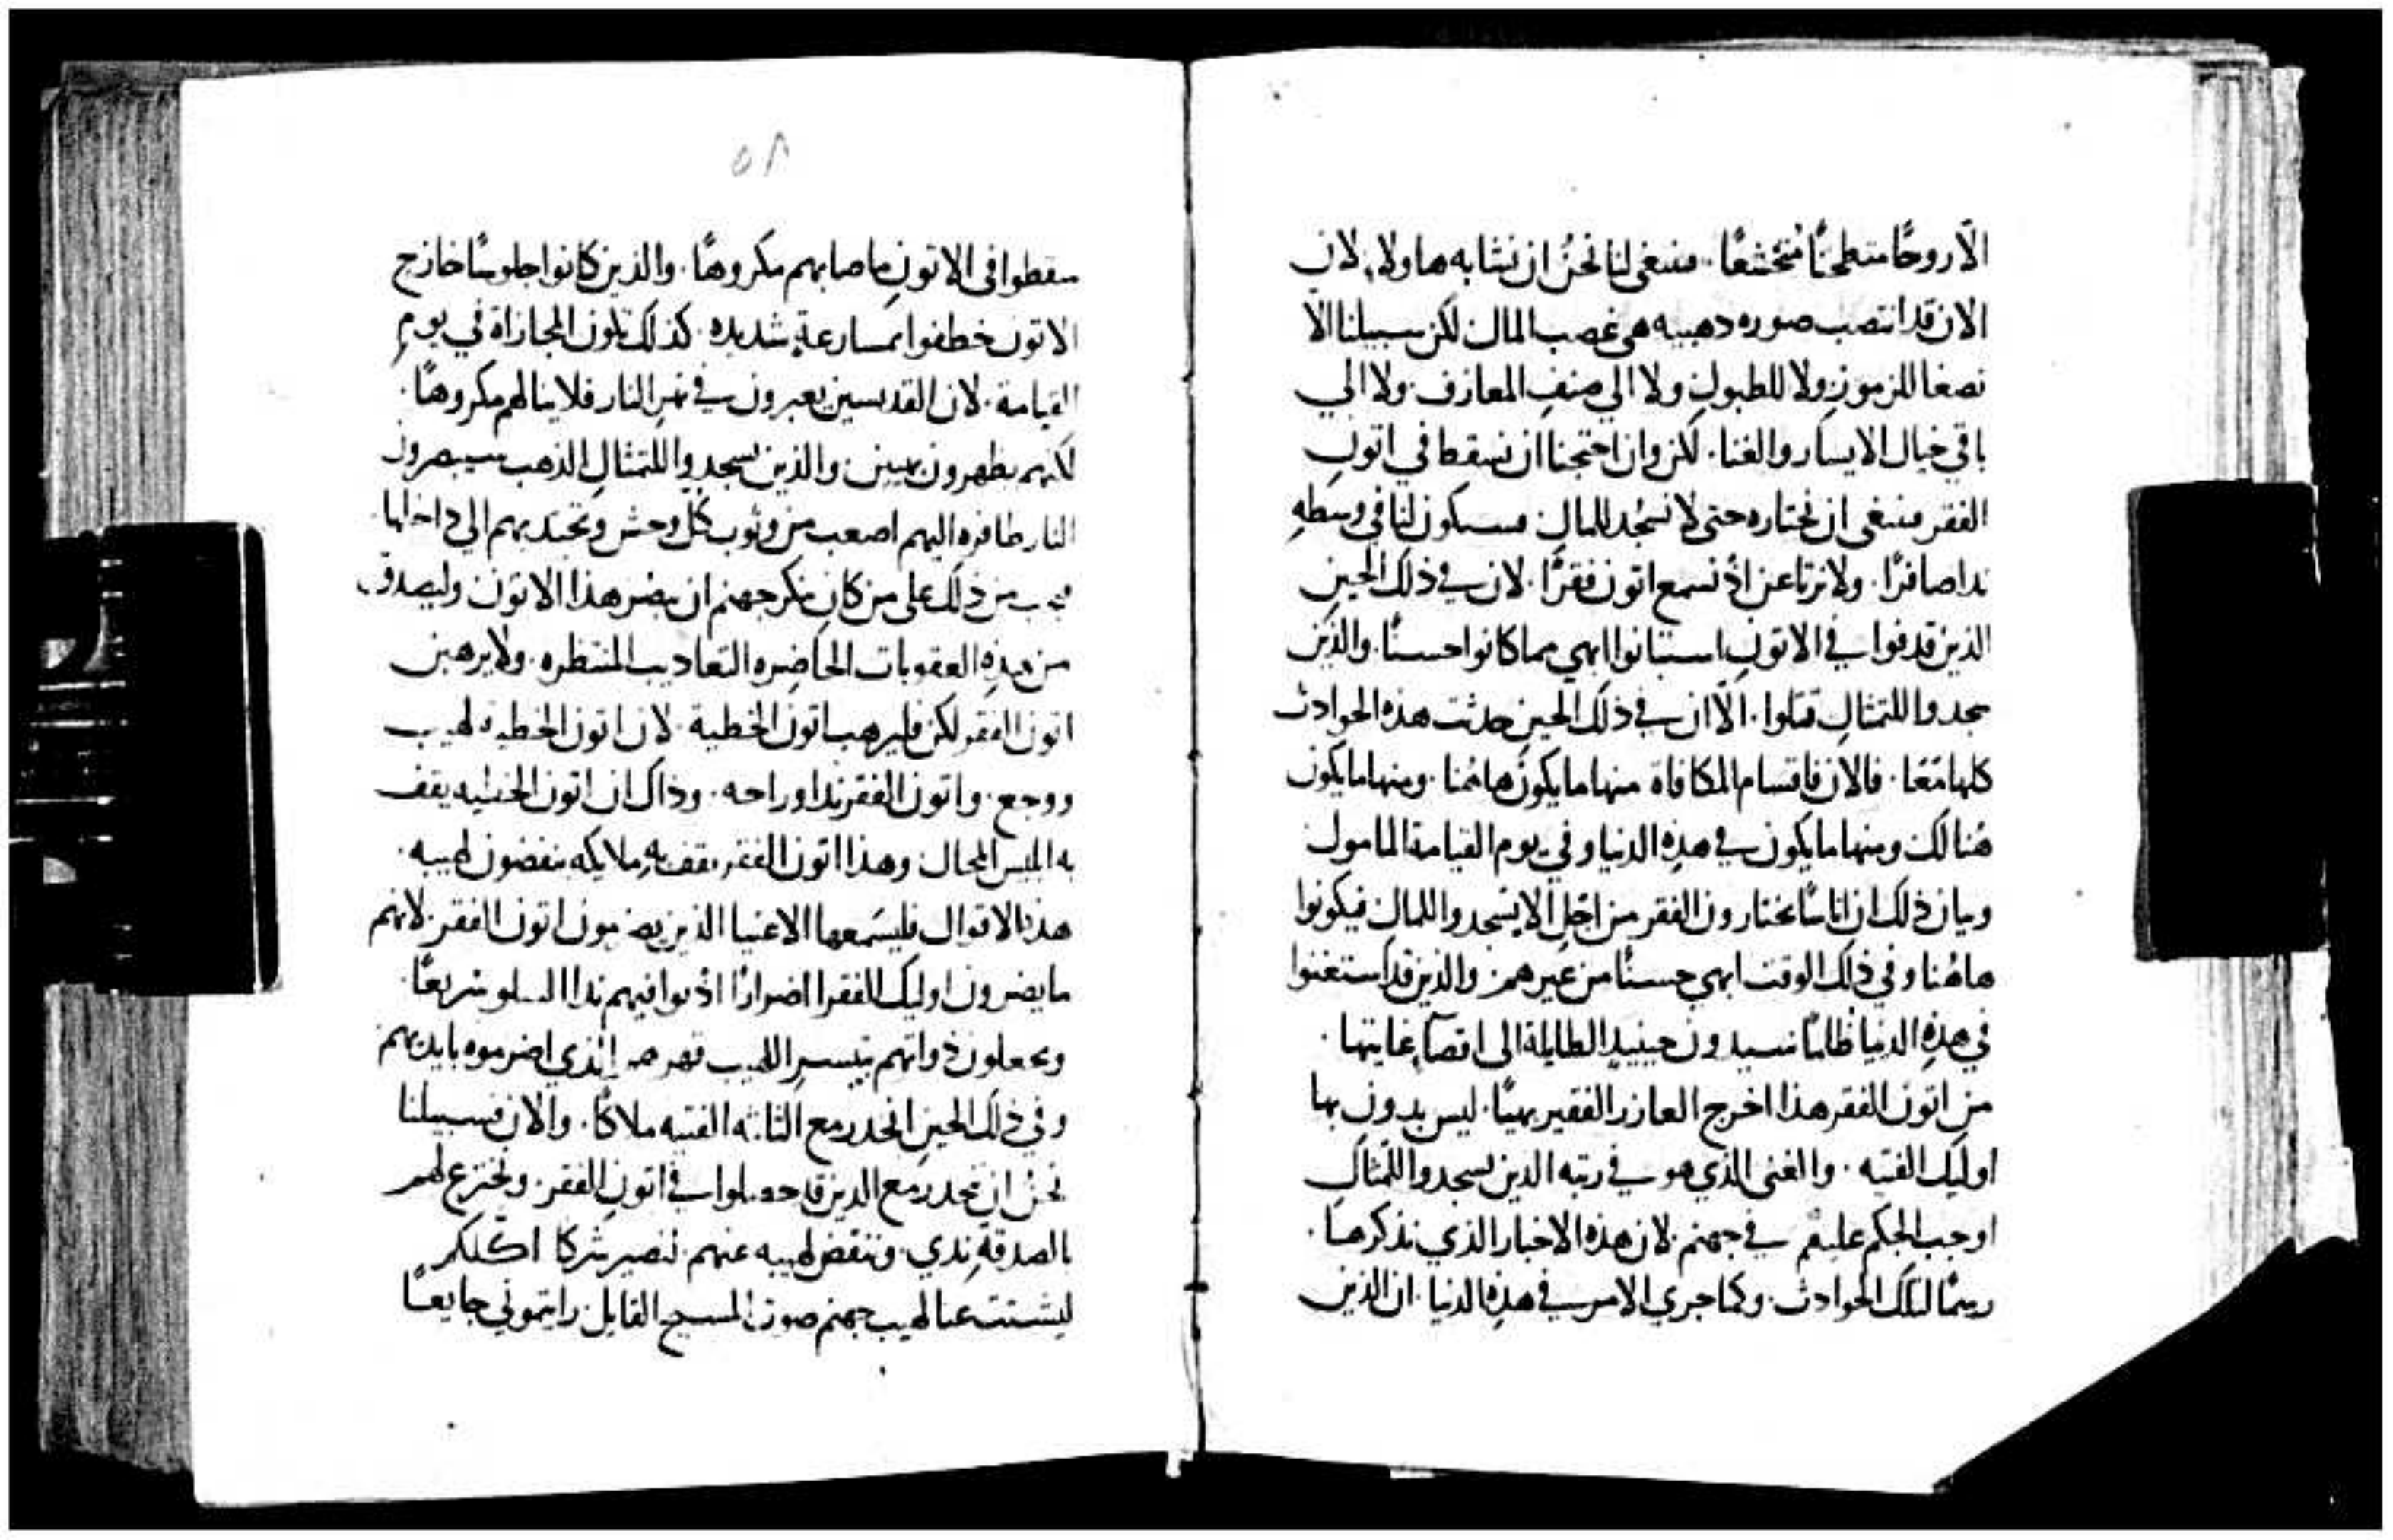 الّا روحًا متطحنًا مُتخشعًا. فينبغى لنا نحنُ ان نشابه هاولاء لان
الان قد انتصب صوره دهبيه هى غصب المال لكن سبيلنا الّا
نصغا للزمورِ ولا للطبولِ ولا الى صنفِ المعازف. ولا الي
باقي خيال الايسار والغنا. لكن وان احتجنا ان نسقط في اتونِ
الفقر فينبغى ان نختاره حتى لا نسجُد للمال فسيكون لنا في وسطهِ
ندا صافرًا. ولا نرتاعن اذ نسمع اتون فقرًا. لان في ذلك الحينِ
الذين قدفوا في الاتونِ استبانوا ابهي مما كانوا حسنًا. والذين
سجدوا للتمثالِ قتلوا. الّا ان في ذلك الحينِ حدثت هذه الحوادث
كلها مَعًا. فالان فاقسام المكافاة منها ما يكون هاهُنا. ومنها ما يكون
هُنالك ومنها ما يكون في هذهِ الدنيا وفي يوم القيامة المامول
وبيان ذلك ان اناسًا يختارون الفقر من اجّلِ الّا يسجدوا للمال فيكونوا
هاهُنا وفي ذلك الوقت ابهي حسنًا من غيرهم والذين قد استغنوا
في هذهِ الدنيا ظالمًا سيدون حينيدٍ الطايلة الى اقصآء غايتها.
من اتون الفقر هذا اخرج العازر الفقير بهيًا. ليس بدون بها
اوليك الفتيه. والغنى الذي هو في رتبه الدين سجدوا للتمثال
اوجب الحكم عليهم في جهنم. لان هذه الاخبار الذي نذكرها.
رسمًا لتلك الحوادث. وكما جري الامر في هذهِ الدنيا. ان الذين
٥٨
سقطوا في الاتونِ ما صابهم مكروهًا. والذين كانوا جلوسًا خارج
الاتون خطفوا بمسارعةٍ شديده. كذلك تكون المجازاة في يومِ
القيامة. لان القديسين يعبرون في نهر النار فلا ينالهم مكروهًا.
لكنهم يظهرون بهيين والذين يسجدوا للتمثال الذهب سيبصرون
النار طافره اليهم اصعب من وثوب كل وحش وتجتدبهم الي داخلها.
فيجب من ذلك على من كان ينكر جهنم ان يبصر هذا الاتون وليصدق
من هذهِ العقوبات الحاضره التعاديب المنتظره. ولا يرهبن
اتون الفقر لكن فليرهب اتون الخطية. لان اتون الخطيه لهيب
ووجع. واتون الفقر ندا وراحه. وذاك ان اتون الخطيه يقف
به ابليس المحال وهذا اتون الفقر يقف بهِ ملايكه ينفضون لهيبه.
هذه الاقوال فليسَمعها الاغنيا الذين يضرمون اتون الفقر. لانهم
ما يضرون اوليك الفقرا اضرارًا اذ يوافيهم ندا السلو سريعًا.
ويجعلون ذواتهم بتيسر اللهيب قهرهم الذي اضرموه بايديهم
وفي ذلك الحينِ انحدر مع الثلثه الفتيه ملاكًا. والان فسبيلنا
نحنُ ان ننحدر مع الدين قد حصلوا في اتون الفقر. ونخترع لهم
بالصدقةِ ندي. وننفض لهيبه عنهم. لنصير شركا اكللكم
ليشتت عنا لهيب جهنم صوت المسيح القايل رايتموني جايعًا